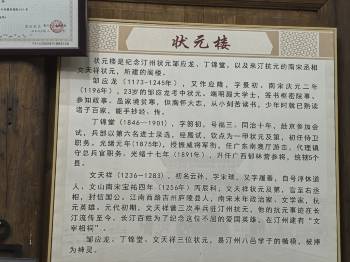 状元楼
状元楼是纪念汀州状元邹应龙、丁锦堂，以及来汀状元的南宋丞相
文天祥状元，所建的阁楼。
邹应龙（1173-1245年），又作应隆，字景初，南宋庆元二年
（1196年），23岁的邹应龙考中状元。端明殿大学士，签书枢密院事，
参知政事。虽家境贫寒，但胸怀大志，从小刻苦读书，少年时就已熟读
诸子百家，能手抄经、传。
丁锦堂（1846～1901），字符初，号砚三，同治十年，赴京参加会
试，兵部以第六名进士录选，经殿试，钦点为一甲状元及第，初任侍卫
职务。光绪元年（1875年），授授威将军衔，任广东南澳厅游总，代理镇
守总兵官职务。光绪十七年（1891年），升任广西郁林营参将，统辖5个
县。
文天祥（1236—1283），初名云孙，字宋瑞，又字履善，自号浮休道
人、文山南宋宝祐四年（1256年）丙辰科，文天祥状元及第，官至右丞
相，封信国公。江南西路吉州庐陵县人，南宋末年政治家、文学家，抗
元英雄。元代初期，文天祥曾三次率兵驻汀州抗元，他的抗元事迹在长
汀流传至今，长汀百姓为了纪念这位不屈的爱国英雄，在汀州建有“文
宰相祠”。
邹应龙、丁锦堂、文天祥三位状元，是汀州八邑学子的楷模，被捧
为神灵。